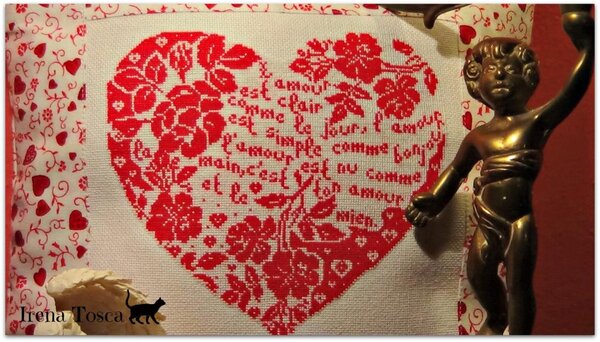 L'amour
est clair
comme le jour, l'amour
est simple comme bonjour
l'amour est nu comme
main, c'est
et le ton amour
mien.
Irena Tosca